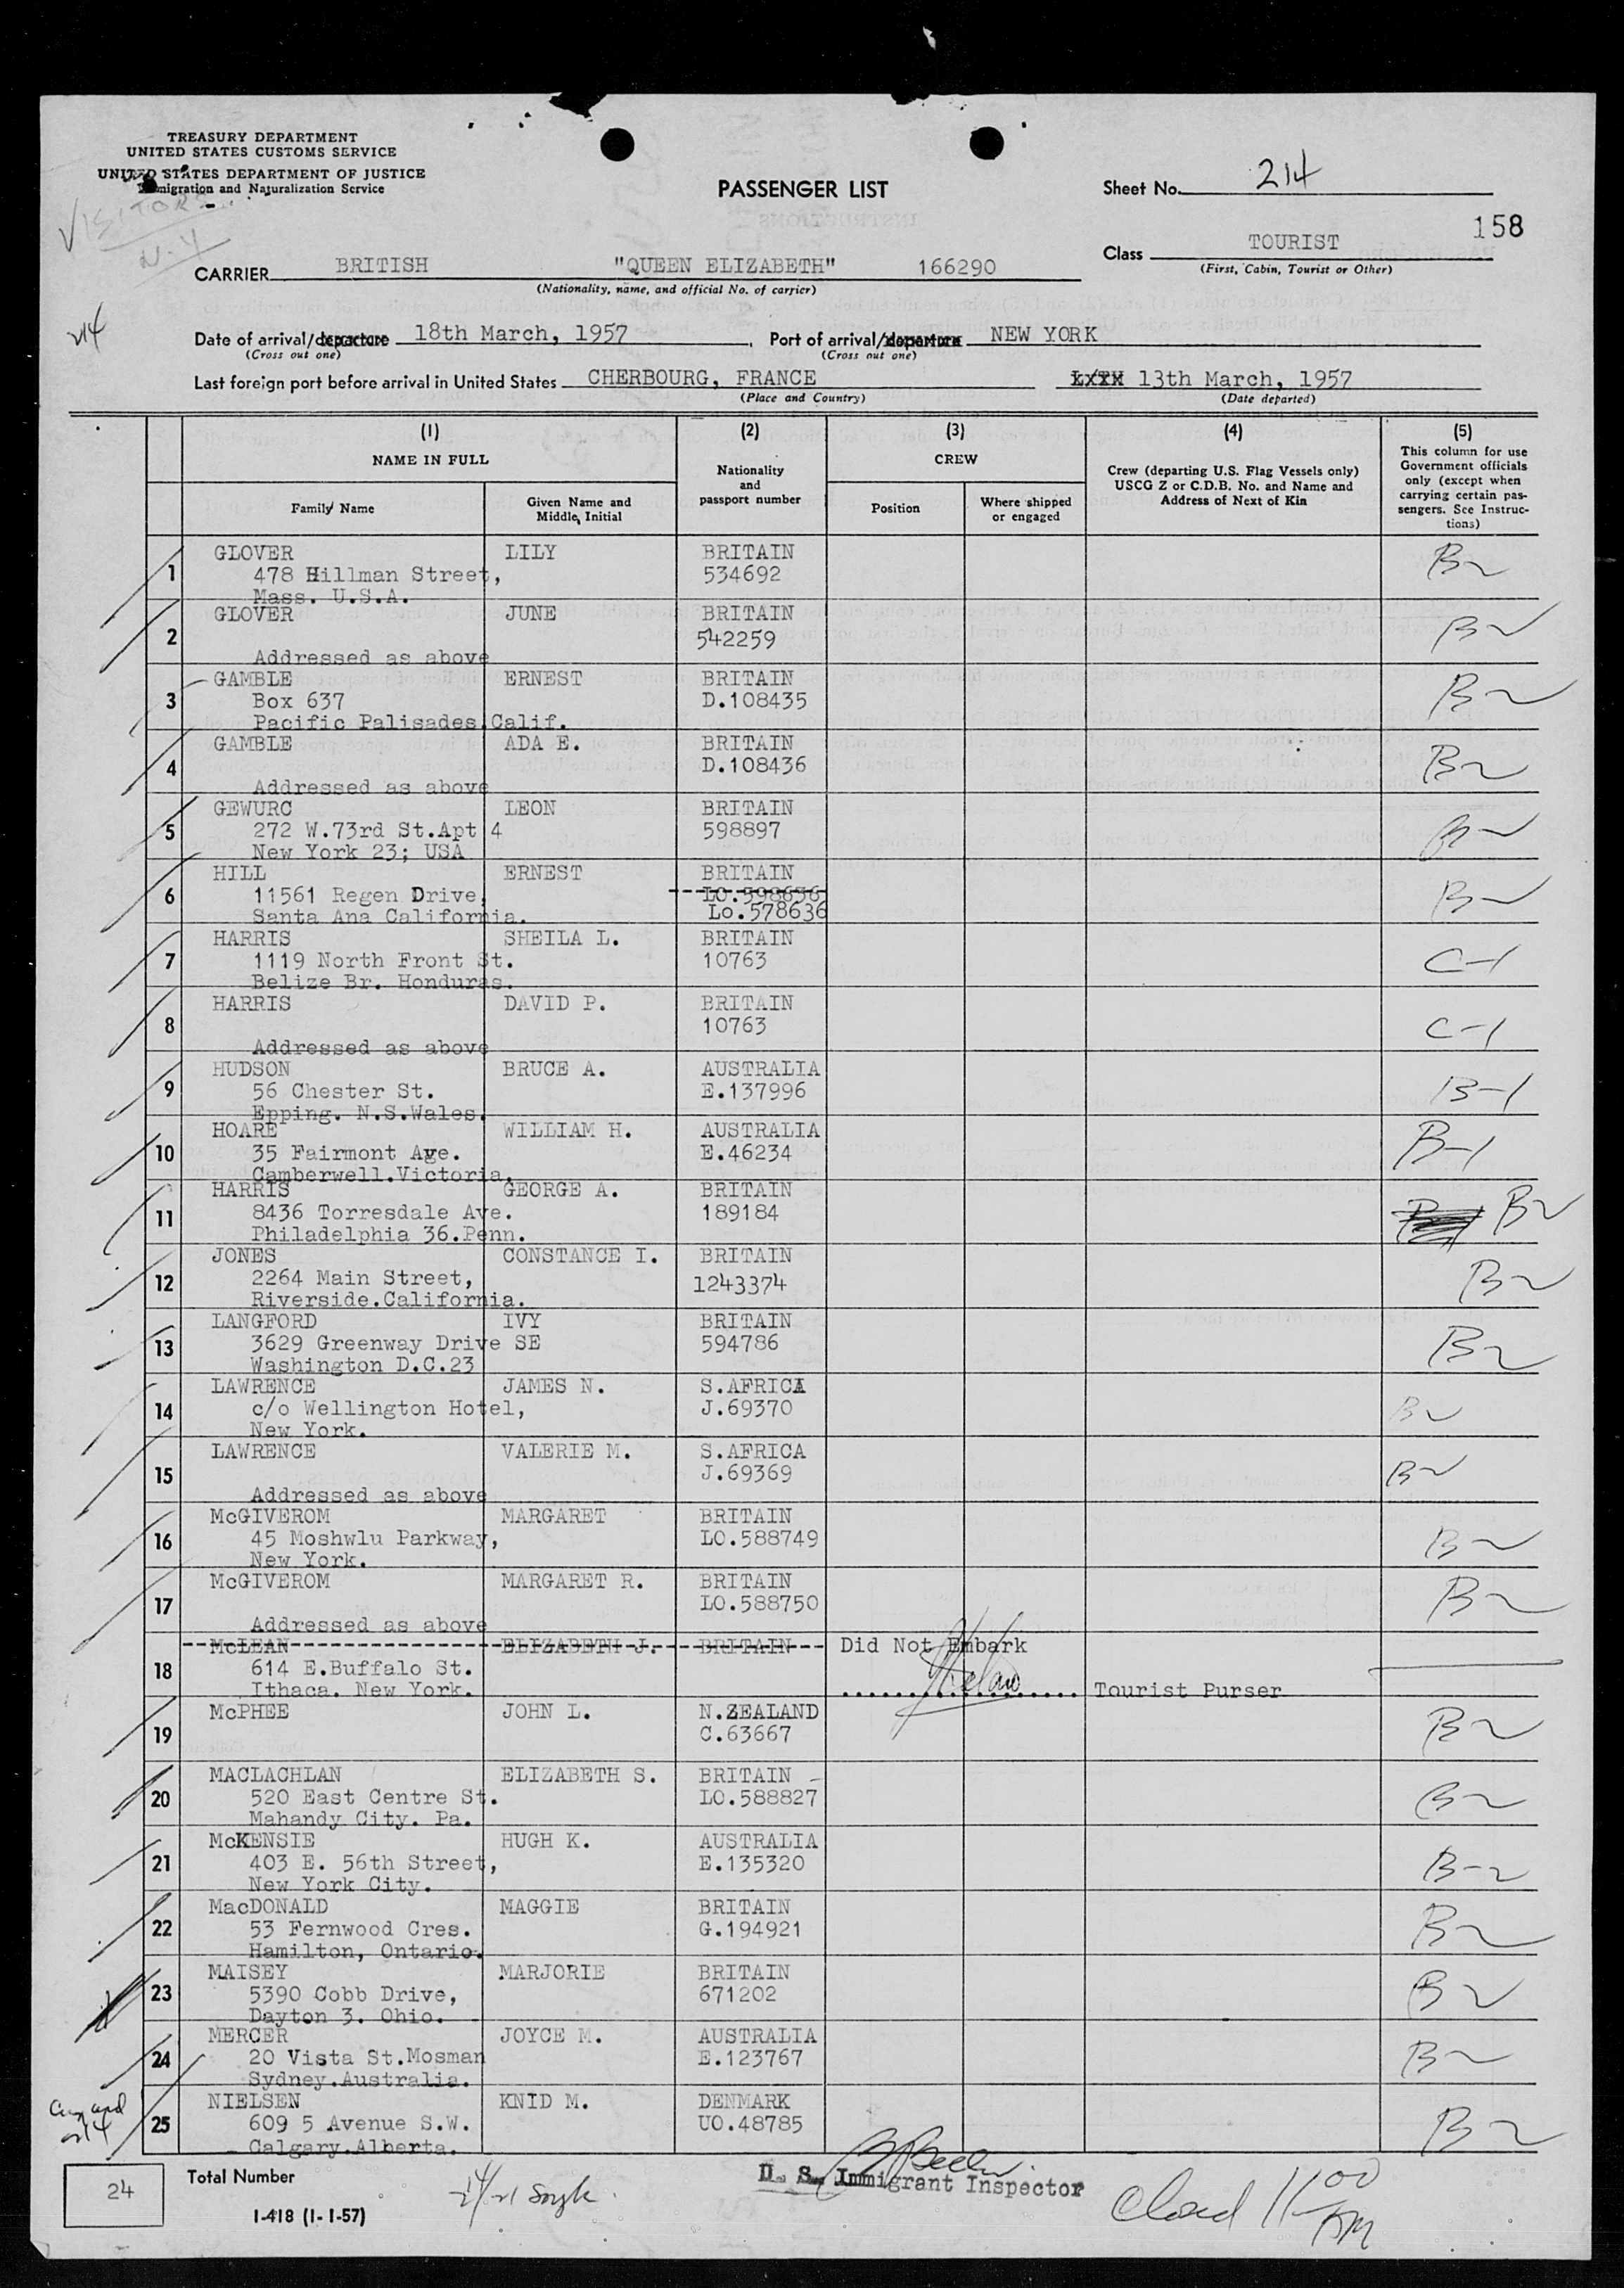 TREASURY DEPARTMENT
UNITED STATES CUSTOMS SERVICE
UNITED STATES DEPARTMENT OF JUSTICE
Immigration and Naturalization Service
VISITORS
N.Y
PASSENGER LIST
Sheet No. 214
158
Class TOURIST
(First, Cabin, Tourist or Other)
CARRIER BRITISH "QUEEN ELIZABETH" 166290
(Nationality, name, and official No. of carrier)
214
Date of arrival/departure 18th March, 1957. Port of arrival/departure NEW YORK
(Cross out one) (Cross out one)
Last foreign port before arrival in United States CHERBOURG, FRANCE 13th March, 1957
(Place and Country) (Date departed)
(1) (2) (3) (4) (5)
NAME IN FULL
Family Name
Given Name and Middle Initial
Nationality and passport number
CREW
Position
Where shipped or engaged
Crew (departing U.S. Flag Vessels only) USCG Z or C.D.B. No. and Name and Address of Next of Kin
This column for use Government officials only (except when carrying certain passengers. See Instructions)
1 GLOVER LILY BRITAIN B2
478 Hillman Street, 534692
Mass. U.S.A.
2 GLOVER JUNE BRITAIN B2
542259
Addressed as above
3 GAMBLE ERNEST BRITAIN B2
Box 637 D.108435
Pacific Palisades Calif.
4 GAMBLE ADA E. BRITAIN B2
D.108436
Addressed as above
5 GEWURC LEON BRITAIN B2
272 W.73rd St.Apt 4 598897
New York 23; USA
6 HILL ERNEST BRITAIN B2
11561 Regen Drive, LO.598636
Santa Ana California. Lo.578636
7 HARRIS SHEILA L. BRITAIN C-1
1119 North Front St. 10763
Belize Br. Honduras.
8 HARRIS DAVID P. BRITAIN C-1
10763
Addressed as above
9 HUDSON BRUCE A. AUSTRALIA B-1
56 Chester St. E.137996
Epping. N.S.Wales.
10 HOARE WILLIAM H. AUSTRALIA B-1
35 Fairmont Ave. E.46234
Camberwell.Victoria.
11 HARRIS GEORGE A. BRITAIN B2
8436 Torresdale Ave. 189184
Philadelphia 36.Penn.
12 JONES CONSTANCE I. BRITAIN B2
2264 Main Street, 1243374
Riverside.California.
13 LANGFORD IVY BRITAIN B2
3629 Greenway Drive SE 594786
Washington D.C.23
14 LAWRENCE JAMES N. S.AFRICA B2
c/o Wellington Hotel, J.69370
New York.
15 LAWRENCE VALERIE M. S.AFRICA B2
J.69369
Addressed as above
16 McGIVEROM MARGARET BRITAIN B2
45 Moshwlu Parkway, LO.588749
New York.
17 McGIVEROM MARGARET R. BRITAIN B2
LO.588750
Addressed as above
18 McLEAN ELIZABETH J. BRITAIN Did Not Embark
614 E.Buffalo St.
Ithaca. New York. Tourist Purser
19 McPHEE JOHN L. N.ZEALAND B2
C.63667
20 MACLACHLAN ELIZABETH S. BRITAIN B2
520 East Centre St. LO.588827
Mahandy City. Pa.
21 McKENSIE HUGH K. AUSTRALIA B-2
403 E. 56th Street, E.135320
New York City.
22 MacDONALD MAGGIE BRITAIN B2
53 Fernwood Cres. G.194921
Hamilton, Ontario.
23 MAISEY MARJORIE BRITAIN B2
5390 Cobb Drive, 671202
Dayton 3. Ohio.
24 MERCER JOYCE M. AUSTRALIA B2
20 Vista St.Mosman E.123767
Sydney.Australia.
25 NIELSEN KNID M. DENMARK B2
609 5 Avenue S.W. UO.48785
Calgary.Alberta.
214
24
Total Number
I-418 (1-1-57)
U. S. Immigrant Inspector
11 00
AM